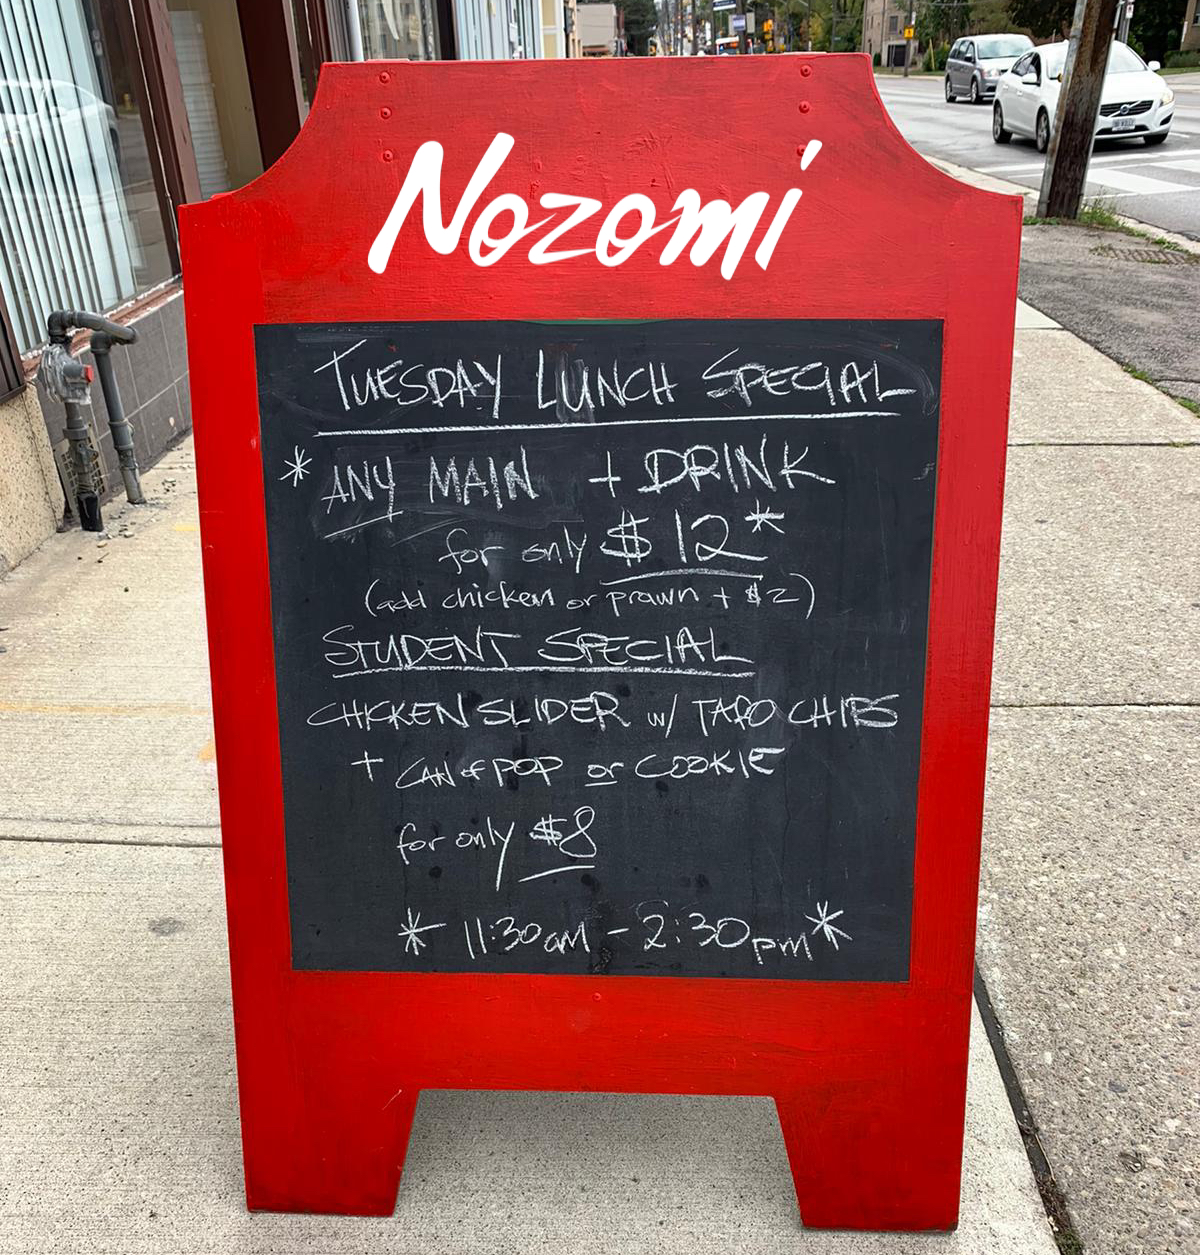 Nozomi
TUESDAY LUNCH SPECIAL
* ANY MAIN + DRINK
for only $12*
(add chicken or prawn + $2)
STUDENT SPECIAL
CHICKEN SLIDER w/ TARO CHIPS
+ CAN of POP or COOKIE
for only $8
* 11:30am - 2:30pm *